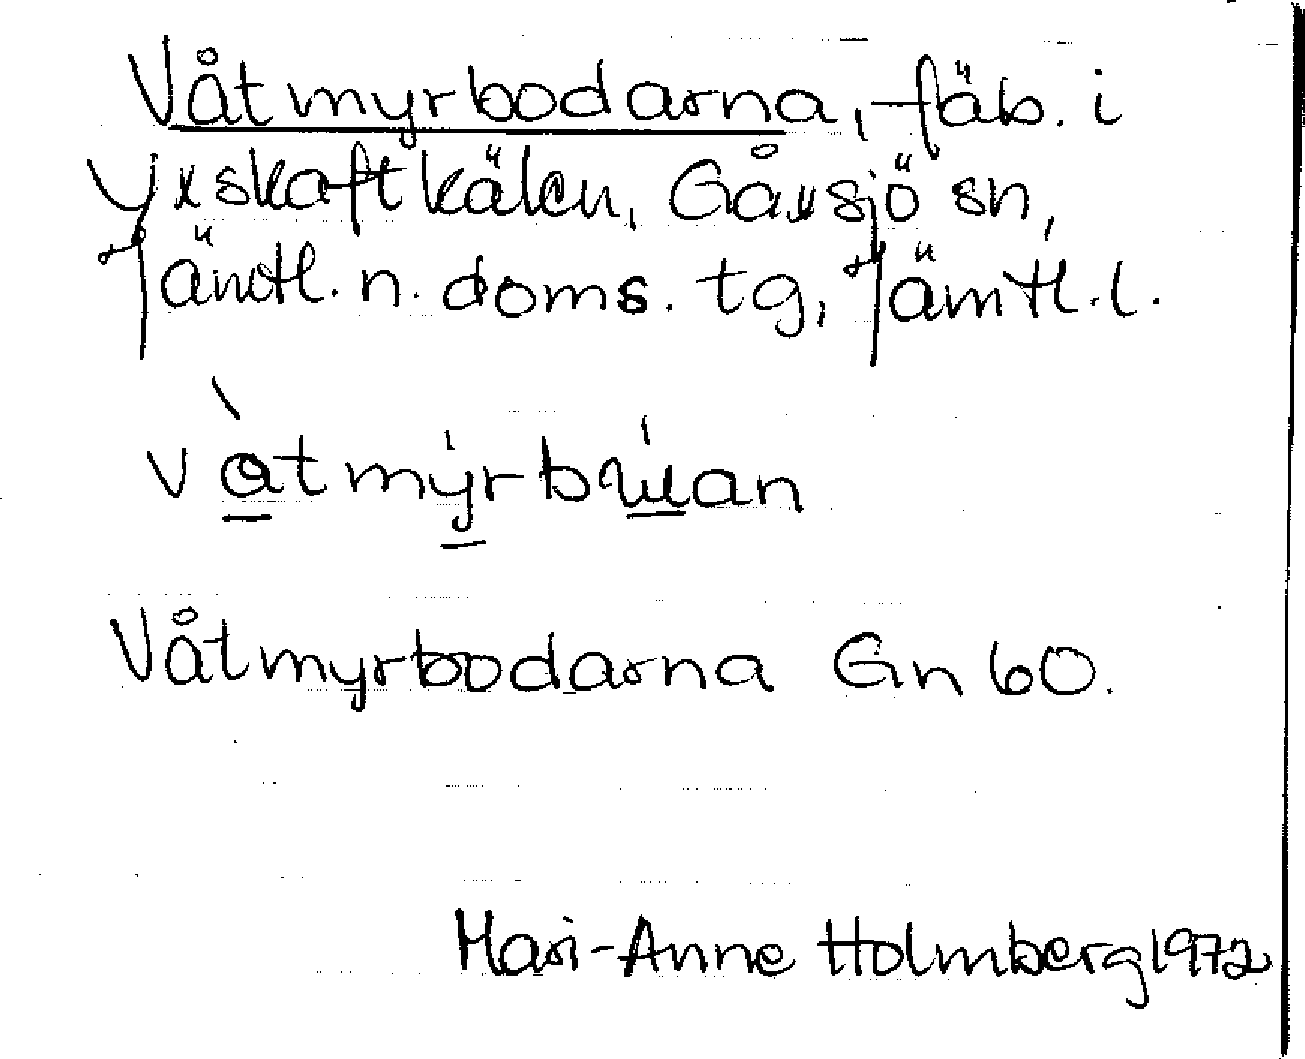 Våtmyrbodarna, fäb. i
Yxskaftkälen, Gåxsjö sn,
Jämtl. n. doms. tg, Jämtl. l.
våtmyrbuan
Våtmyrbodarna Gn 60.
Mari-Anne Holmberg 1972